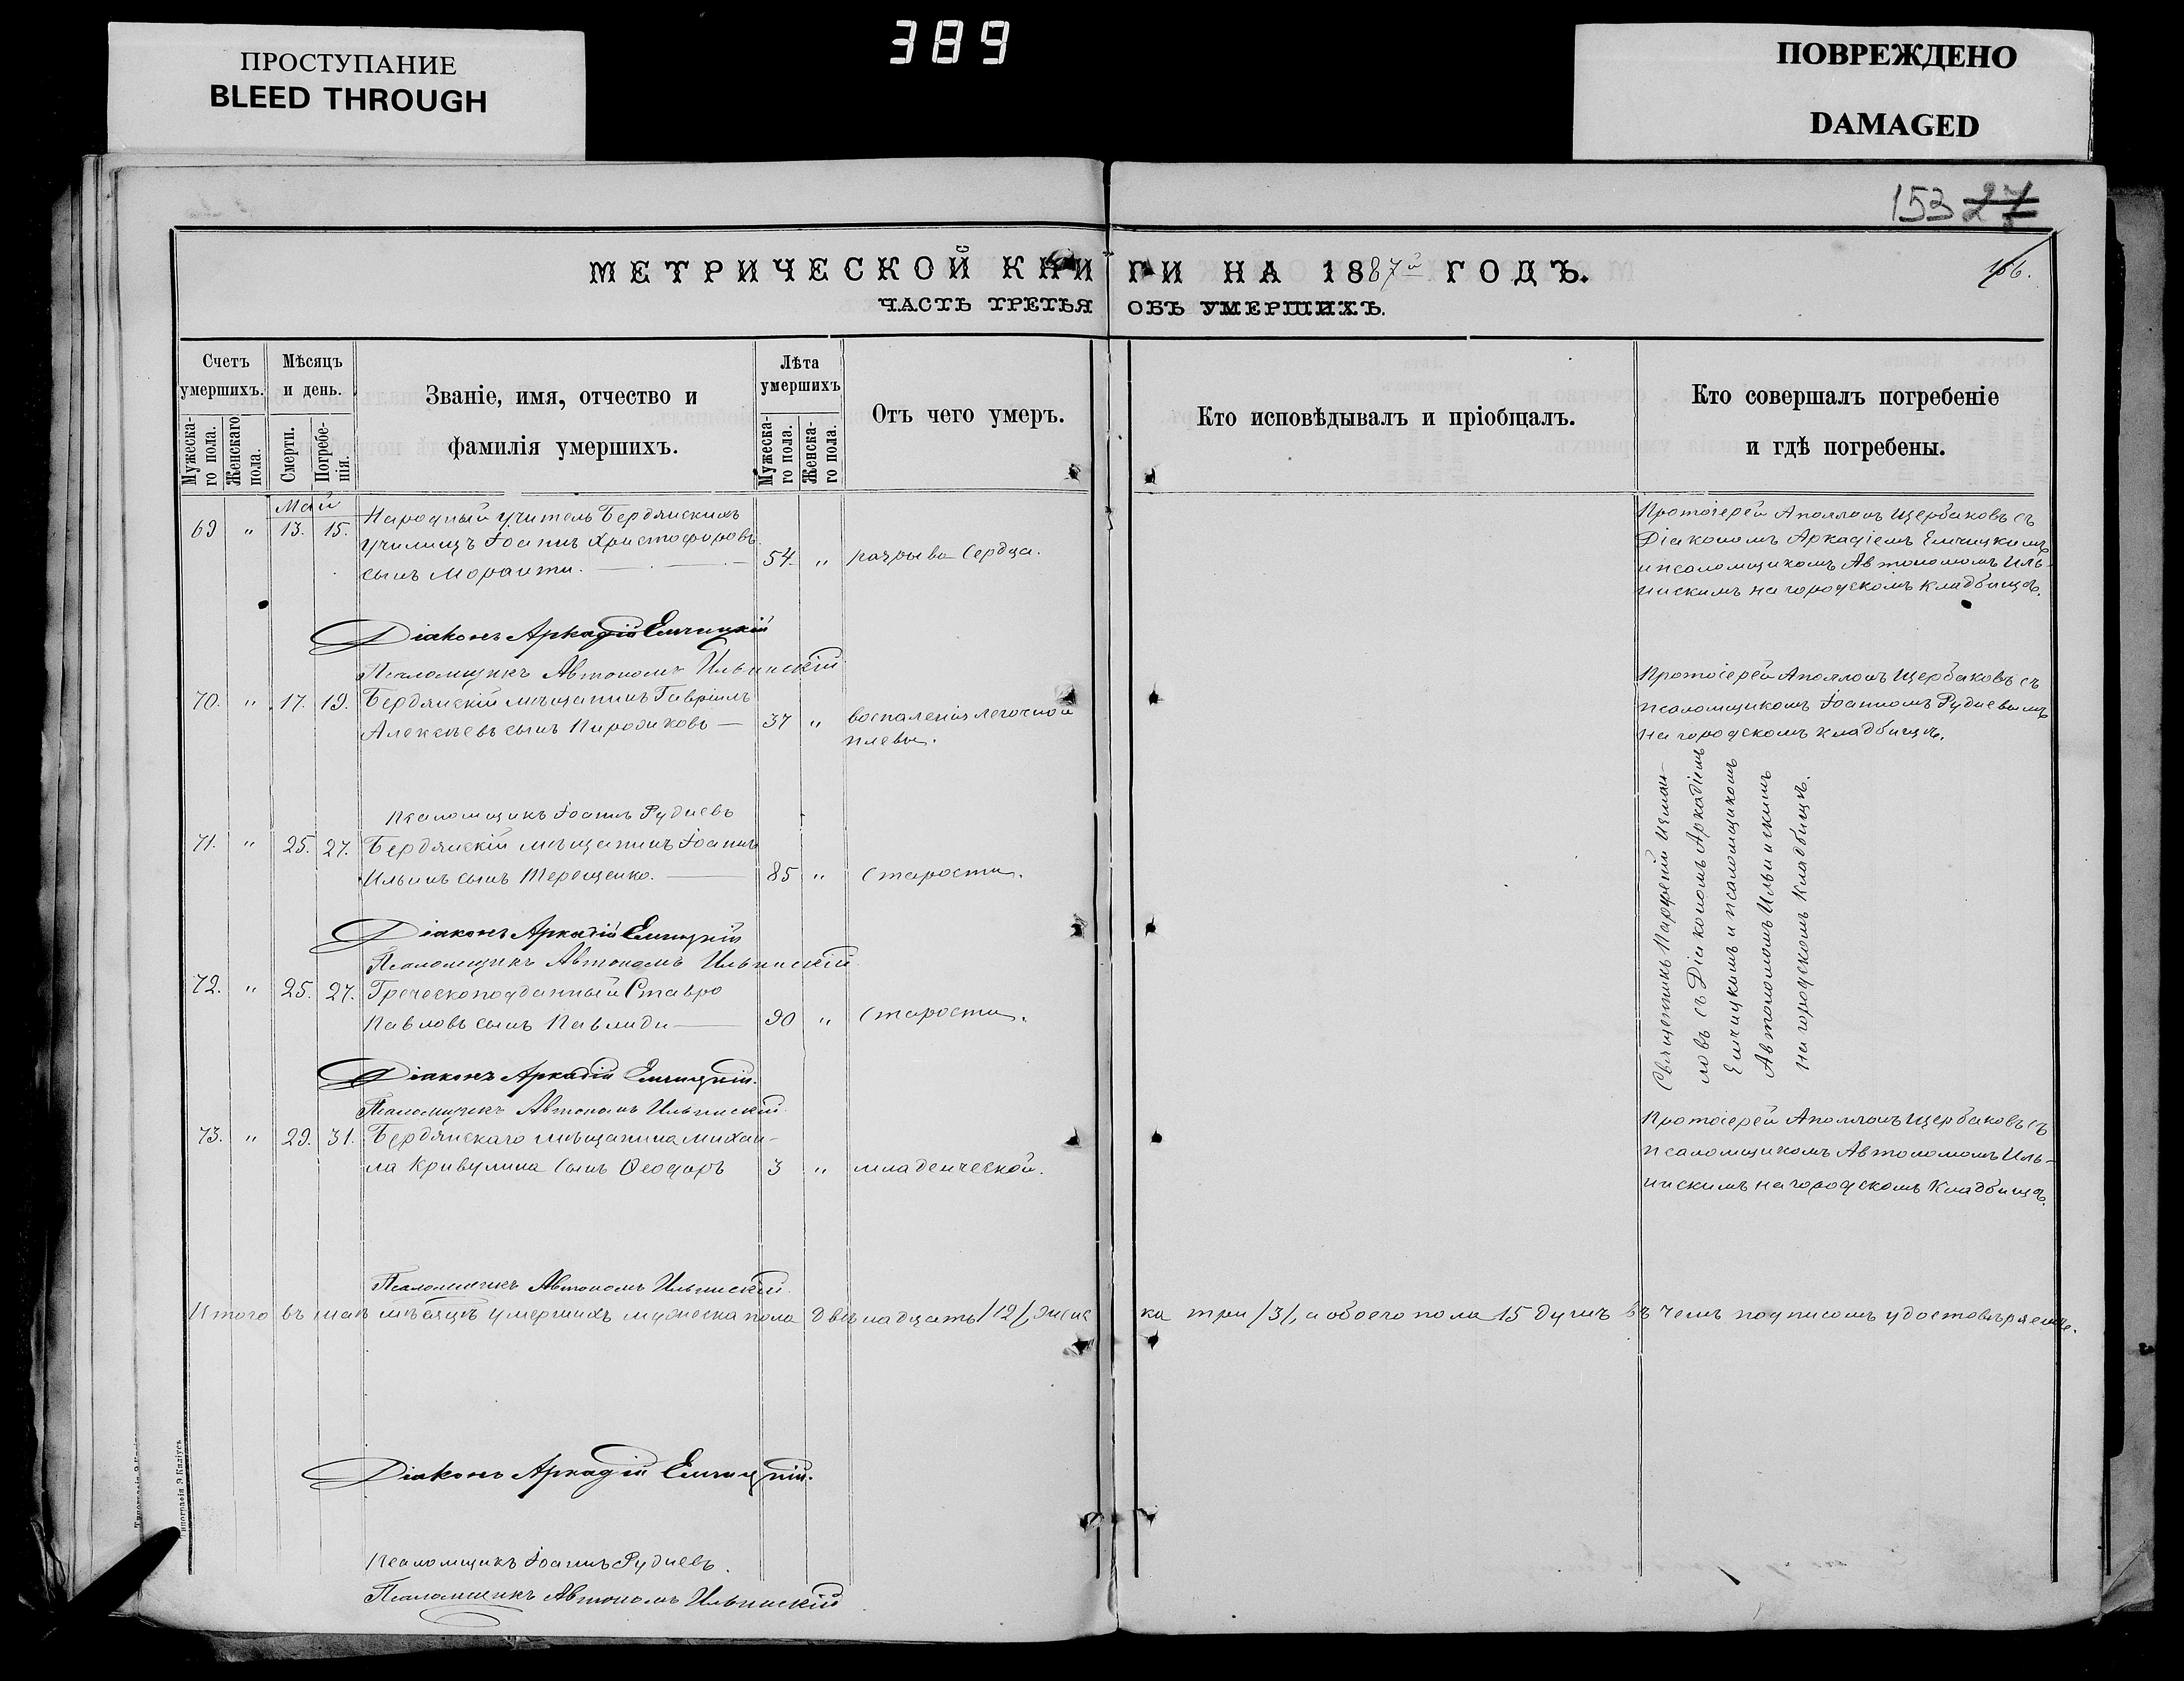 ПРОСТУПАНИЕ
BLEED THROUGH
389
ПОВРЕЖДЕНО
DAMAGED
153 27
МЕТРИЧЕСКОЙ КНИГИ НА 1887й ГОДЪ.
166.
ЧАСТЬ ТРЕТЬЯ ОБЪ УМЕРШИХЪ.
Счетъ умершихъ.
Мужеска-го пола.
Женскаго пола.
Мѣсяцъ и день.
Смерти.
Погребе-нія.
Званіе, имя, отчество и
фамилія умершихъ.
Лѣта умершихъ
Мужеска-го пола.
Женска-го пола.
Отъ чего умеръ.
Кто исповѣдывалъ и пріобщалъ.
Кто совершалъ погребеніе
и гдѣ погребены.
Май
69 " 13. 15. Народный учитель Бердянскихъ
училищъ Іоаннъ Христофоровъ
сынъ Мораити. 54. " разрыва сердца.
Протоіерей Аполлонъ Щербаковъ съ
Діакономъ Аркадіемъ Емчицкимъ
и псаломщикомъ Автономомъ Иль-
инскимъ на городскомъ кладбищѣ.
Діаконъ Аркадій Емчицкій
Псаломщикъ Автономъ Ильинскій
70. " 17. 19. Бердянскій мѣщанинъ Гавріилъ
Алексѣевъ сынъ Пародиковъ — 37 " воспаленія легочной
плевы.
Протоіерей Аполлонъ Щербаковъ съ
псаломщикомъ Іоанномъ Рудневымъ
на городскомъ кладбищѣ.
Псаломщикъ Іоаннъ Рудневъ
71. " 25. 27. Бердянскій мѣщанинъ Іоаннъ
Ильинъ сынъ Терещенко. — 85 " старости.
Священникъ Парѳеній Измаи-
ловъ съ Діакономъ Аркадіемъ
Емчицкимъ и псаломщикомъ
Автономомъ Ильинскимъ
на городскомъ кладбищѣ.
Діаконъ Аркадій Емчицкій
Псаломщикъ Автономъ Ильинскій
72. " 25. 27. Греческоподданный Ставро
Павловъ сынъ Павлиди — 90 " старости.
Діаконъ Аркадій Емчицкій.
Псаломщикъ Автономъ Ильинскій
73. " 29. 31. Бердянскаго мѣщанина Михаи-
ла Кривулина сынъ Ѳеодоръ 3 " младенческой.
Протоіерей Аполлонъ Щербаковъ съ
псаломщикомъ Автономомъ Иль-
инскимъ на городскомъ кладбищѣ.
Псаломщикъ Автономъ Ильинскій.
Итого въ маѣ мѣсяцѣ умершихъ мужеска пола двѣнадцать /12/, женска три /3/, а обоего пола 15 душъ въ чемъ подписомъ удостовѣряемъ.
Діаконъ Аркадій Емчицкій.
Псаломщикъ Іоаннъ Рудневъ.
Псаломщикъ Автономъ Ильинскій